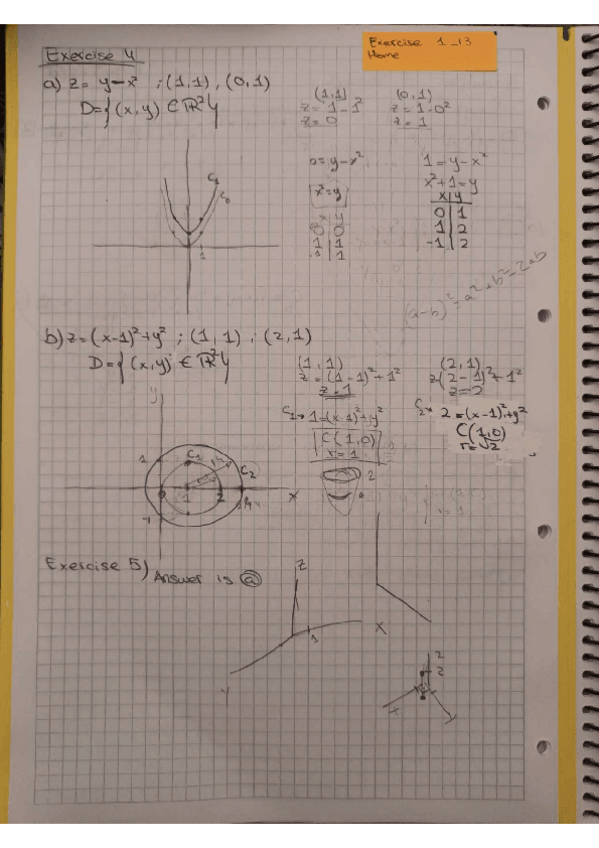 Exercise 1_13
Home
Exercise 4
a) z = y-x² ; (1,1) , (0,1)
D={(x,y) ∈ ℝ²}
(1,1)
z = 1-1²
z = 0
(0,1)
z = 1-0²
z = 1
0=y-x²
x²=y
x y
0 0
1 1
-1 1
1=y-x²
x²+1=y
x y
0 1
1 2
-1 2
C₁
C₀
1
(a-b)²=a²+b²-2ab
b) z=(x-1)²+y² ; (1,1) ; (2,1)
D={(x,y) ∈ ℝ²}
(1,1)
z=(1-1)²+1²
z=1
(2,1)
z(2-1)²+1²
z=2
C₁→ 1=(x-1)²+y²
C(1,0)
r=1
C₂→ 2=(x-1)²+y²
C(1,0)
r=√2
y
1
C₁
C₂
1
2
x
-1
2
Exercise 5) Answer is ⓐ
z
x
1
y
z
2
x